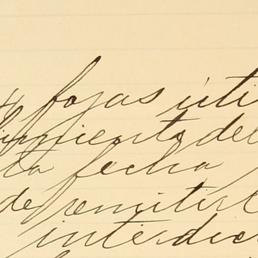 y fojas úti
limiento del
ta fecha
de remitirl
interdic